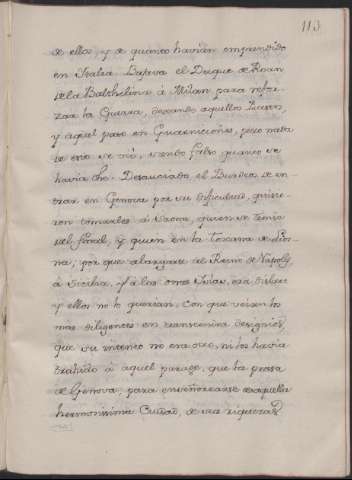 113
de ellos, y de quanto havian emprendido
en Italia. Bajava el Duque de Roan
de la Balthelina à Milan para refor-
zar la Guerra, dexando aquellos Passos,
y aquel pais en Guarniciones, pero nada
de esto se vió, siendo falso quanto se
havia dho. Desauciado el Bandra de en-
trar en Genova por su dificultad, quisie-
ron tomarles à Saona, quien de Tenia
del final, y quien en la Toscana de Lior-
na, por que alargarse al Reino de Napoles,
à Sicilia, y à las otras Islas, era dificil
y ellos no lo querian. Con que veian los
mas diligentes en transcender designios,
que su intento no era otro, ni los havia
trahido à aquel parage, que la pressa
de Genova, para enseñorearse de aquella
hermosissima Ciudad, de sus riquezas